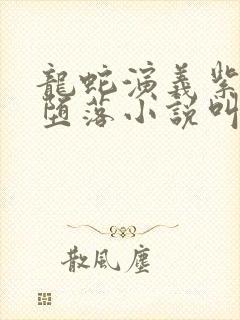 龍蛇演義紫
堕落小説叫
散風塵